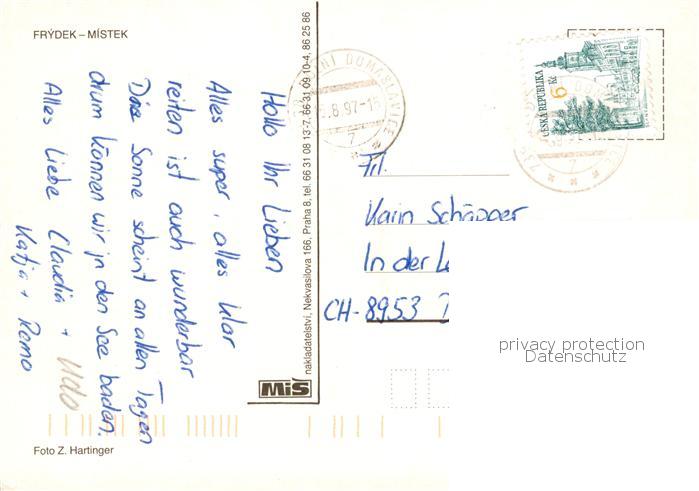 FRÝDEK – MÍSTEK
Hallo Ihr Lieben
Alles super, alles klar
reiten ist auch wunderbar
Die Sonne scheint an allen Tagen
drum können wir in den See baden.
Alles Liebe Claudia + Udo
Katja + Remo
Foto Z. Hartinger
nakladatelství, Nekvasilova 166, Praha 8, tel. 66 31 08 13-7, 66 31 09 10-4, 86 25 86
MiS
DOMASLAVICE
.8.97-1
7
ČESKÁ REPUBLIKA
6 Kč
Frl.
Karin Schäpper
In der L
CH-8953 D
privacy protection
Datenschutz